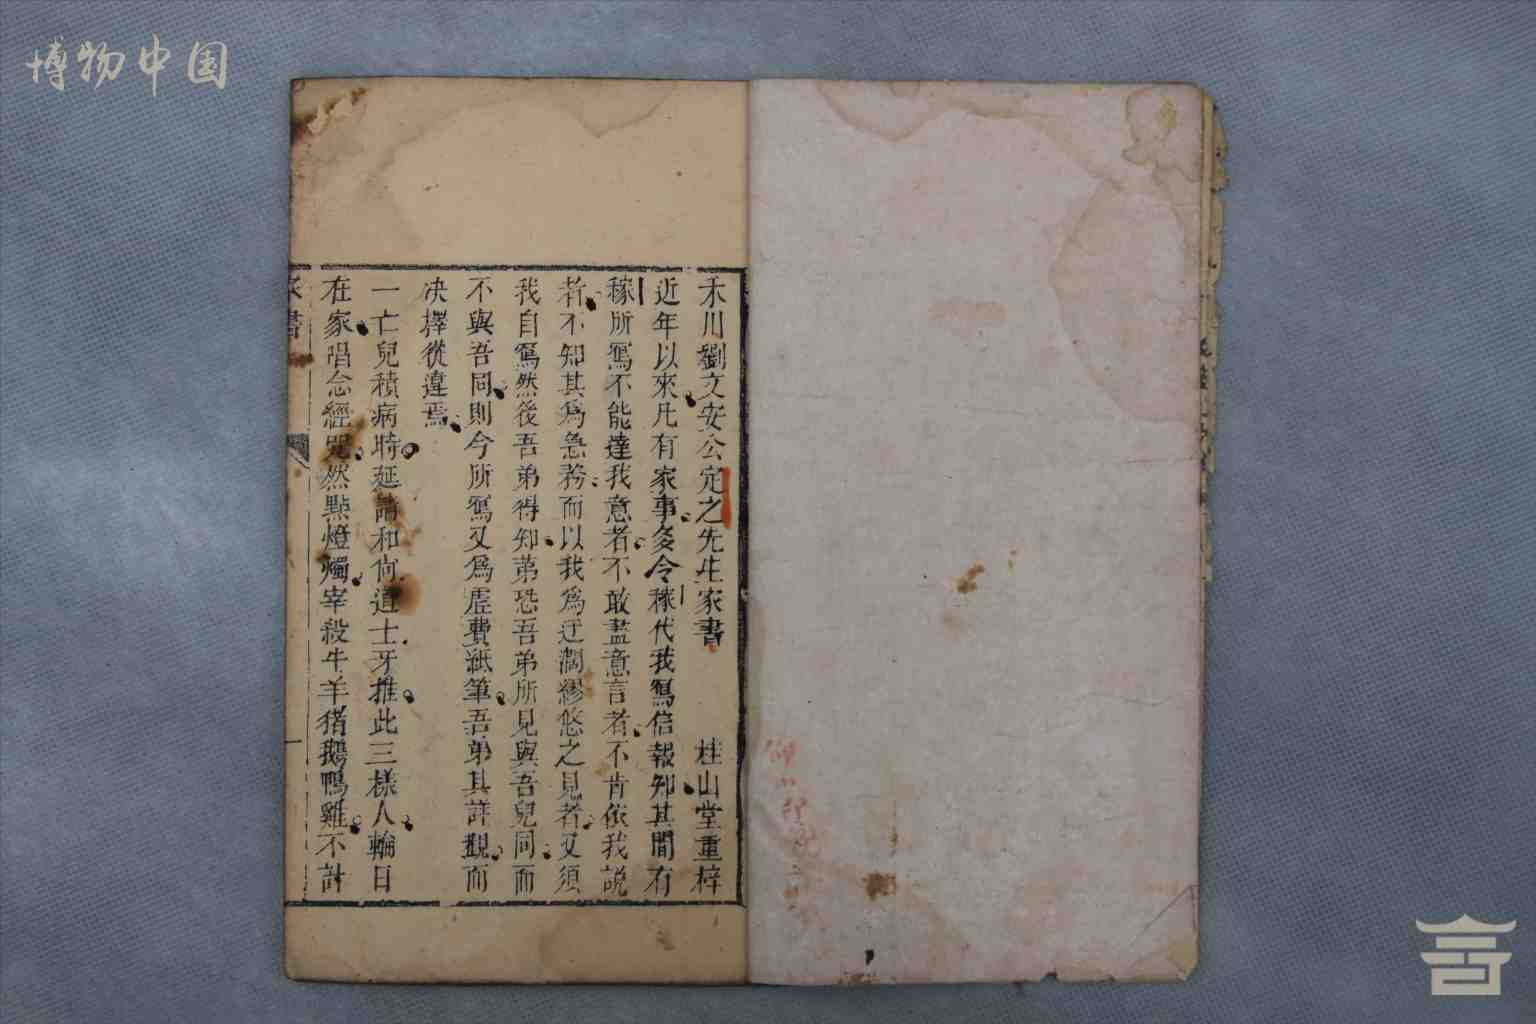 博物中国
禾川劉文安公定之先生家書 桂山堂重梓
近年以來凡有家事多令稼代我寫信報知其間有
稼所寫不能達我意者不敢盡意言者不肯依我說
者不知其爲急務而以我爲迂濶繆悠之見者又須
我自寫然後吾弟得知苐恐吾弟所見與吾兒同而
不與吾同則今所寫又爲虛費紙筆吾弟其詳觀而
决擇從違焉
一亡兒積病時延請和尙道士牙推此三樣人輪日
在家唱念經咒然點燈燭宰殺牛羊猪鵝鴨雞不計
書